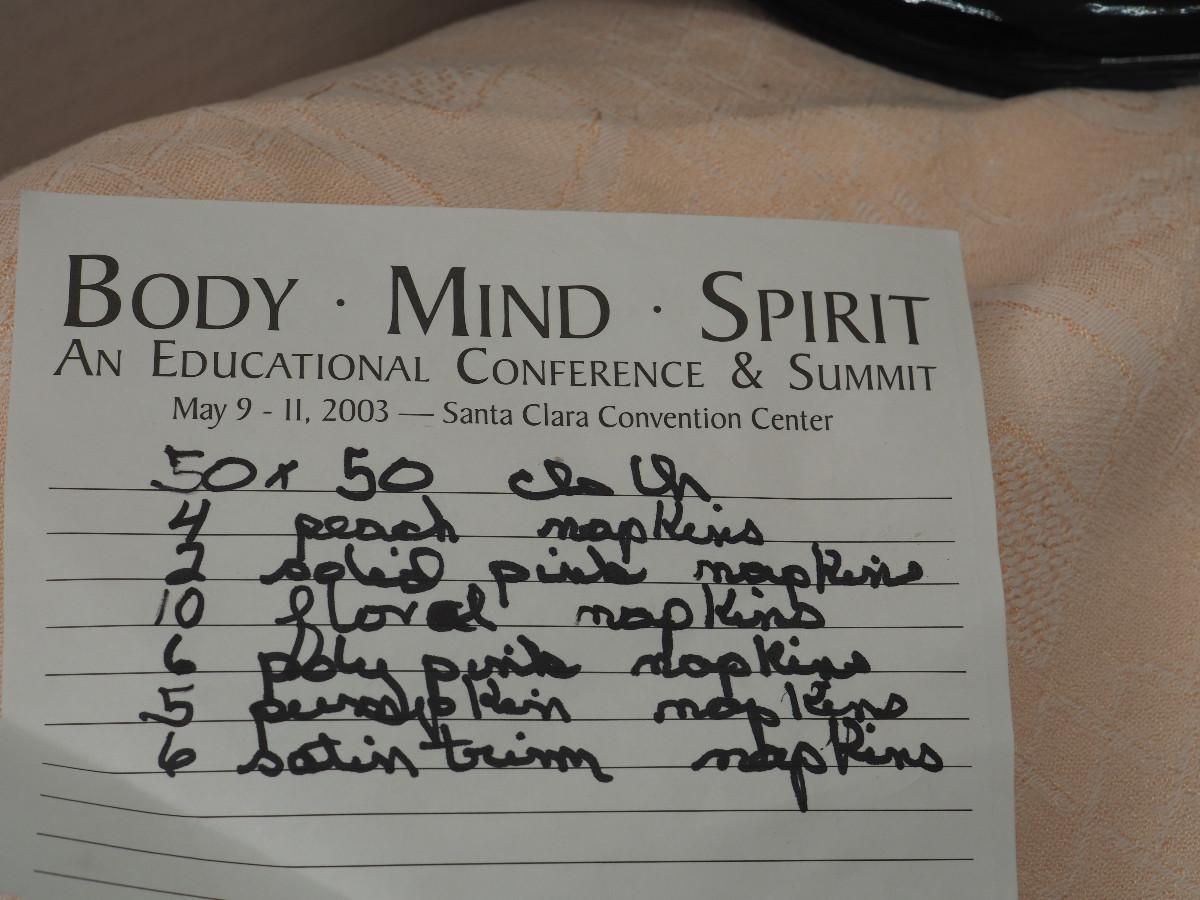 BODY · MIND · SPIRIT
AN EDUCATIONAL CONFERENCE & SUMMIT
May 9 - 11, 2003 — Santa Clara Convention Center
50 x 50 cloth
4 peach napkins
2 solid pink napkins
10 floral napkins
6 poly pink napkins
5 pumpkin napkins
6 satin trim napkins